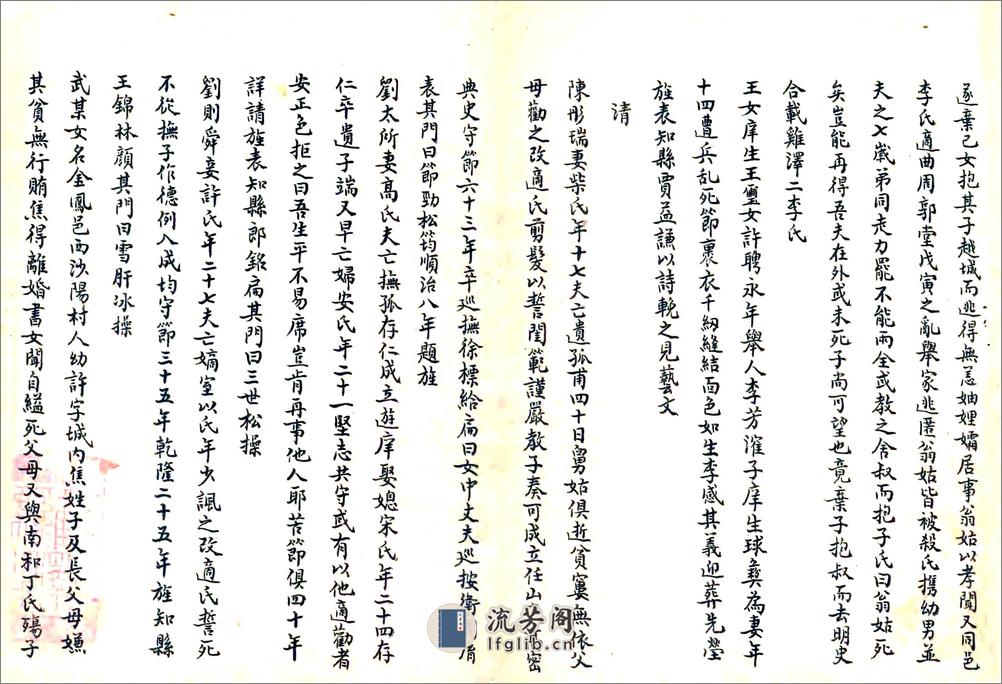 遂棄己女抱其子越城而逃得無恙妯娌孀居事翁姑以孝聞又同邑
李氏適曲周郭堂戊寅之亂舉家逃匿翁姑皆被殺氏攜幼男並
夫之七歲弟同走力罷不能兩全或教之舍叔而抱子氏曰翁姑死
矣豈能再得吾夫在外或未死子尚可望也竟棄子抱叔而去明史
合載雞澤二李氏
王女庠生王璽女許聘永年舉人李芳漼子庠生球彝為妻年
十四遭兵乱死節裹衣千紉縫結面色如生李感其義迎葬先塋
旌表知縣賈益謙以詩輓之見藝文
清
陳彤瑞妻柴氏年十七夫亡遺孤甫四十日舅姑俱逝貧窶無依父
母勸之改適氏剪髮以誓閨範謹嚴教子奏可成立任山密
典史守節六十三年卒巡撫徐標給扁曰女中丈夫巡按衛
表其門曰節勁松筠順治八年題旌
劉太所妻高氏夫亡撫孤存仁成立遊庠娶媳宋氏年二十四存
仁卒遺子端又早亡婦安氏年二十一堅志共守或有以他適勸者
安正色拒之曰吾生平不易席豈肯再事他人耶苦節俱四十年
詳請旌表知縣郎銘扁其門曰三世松操
劉則舜妾許氏年二十七夫亡嫡室以氏年少諷之改適氏誓死
不從撫子作德例入成均守節三十五年乾隆二十五年旌知縣
王錦林顔其門曰雪肝冰操
武某女名金鳳邑西沙陽村人幼許字城內焦姓子及長父母嫌
其貧無行賄焦得離婚書女聞自縊死父母又與南和丁氏殤子
流芳阁
lfglib.cn